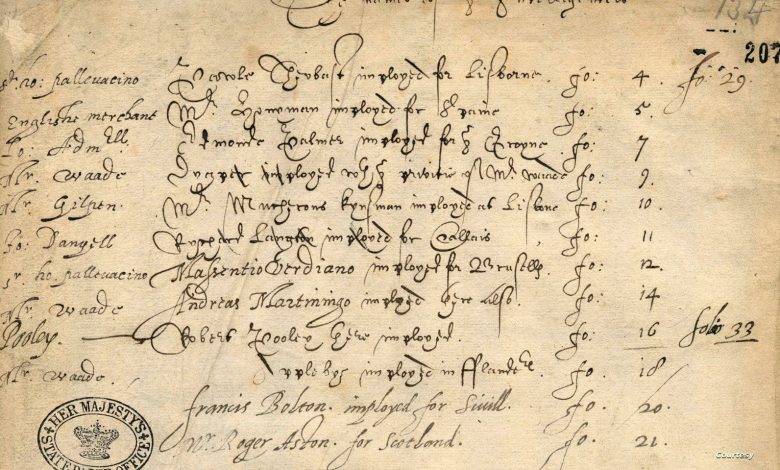 134
207
Sr. ho: pallevacino imployed for Lisborne. fo: 4. fo: 29.
Englishe merchant Mr. imployed for Spaine fo: 5.
Jo: Admll Edmonde Palmer imployed for ye Groyne. fo: 7
Mr. Waade imployed Mr. Waade fo: 9.
Mr. Gilpen. Mr. kynsman imployed at Lisbone fo: 10.
Jo: Dangell Rycherd Langton imployed for Callais, fo: 11
Sr ho. pallevacino Massentio Verdiano imployed for Brusells fo: 12.
Mr. Waade Andreas Martiningo imployed here also. fo: 14
Pooley. Robert Pooley here imployed. fo: 16 folio 33
Mr. Waade. Applebys imployed in fflanders. fo: 18
francis Bolton. imployed for Sivill. fo. 20.
Mr Roger Aston. for Scotland. fo. 21.
HER MAJESTYS STATE PAPER OFFICE
Courtesy